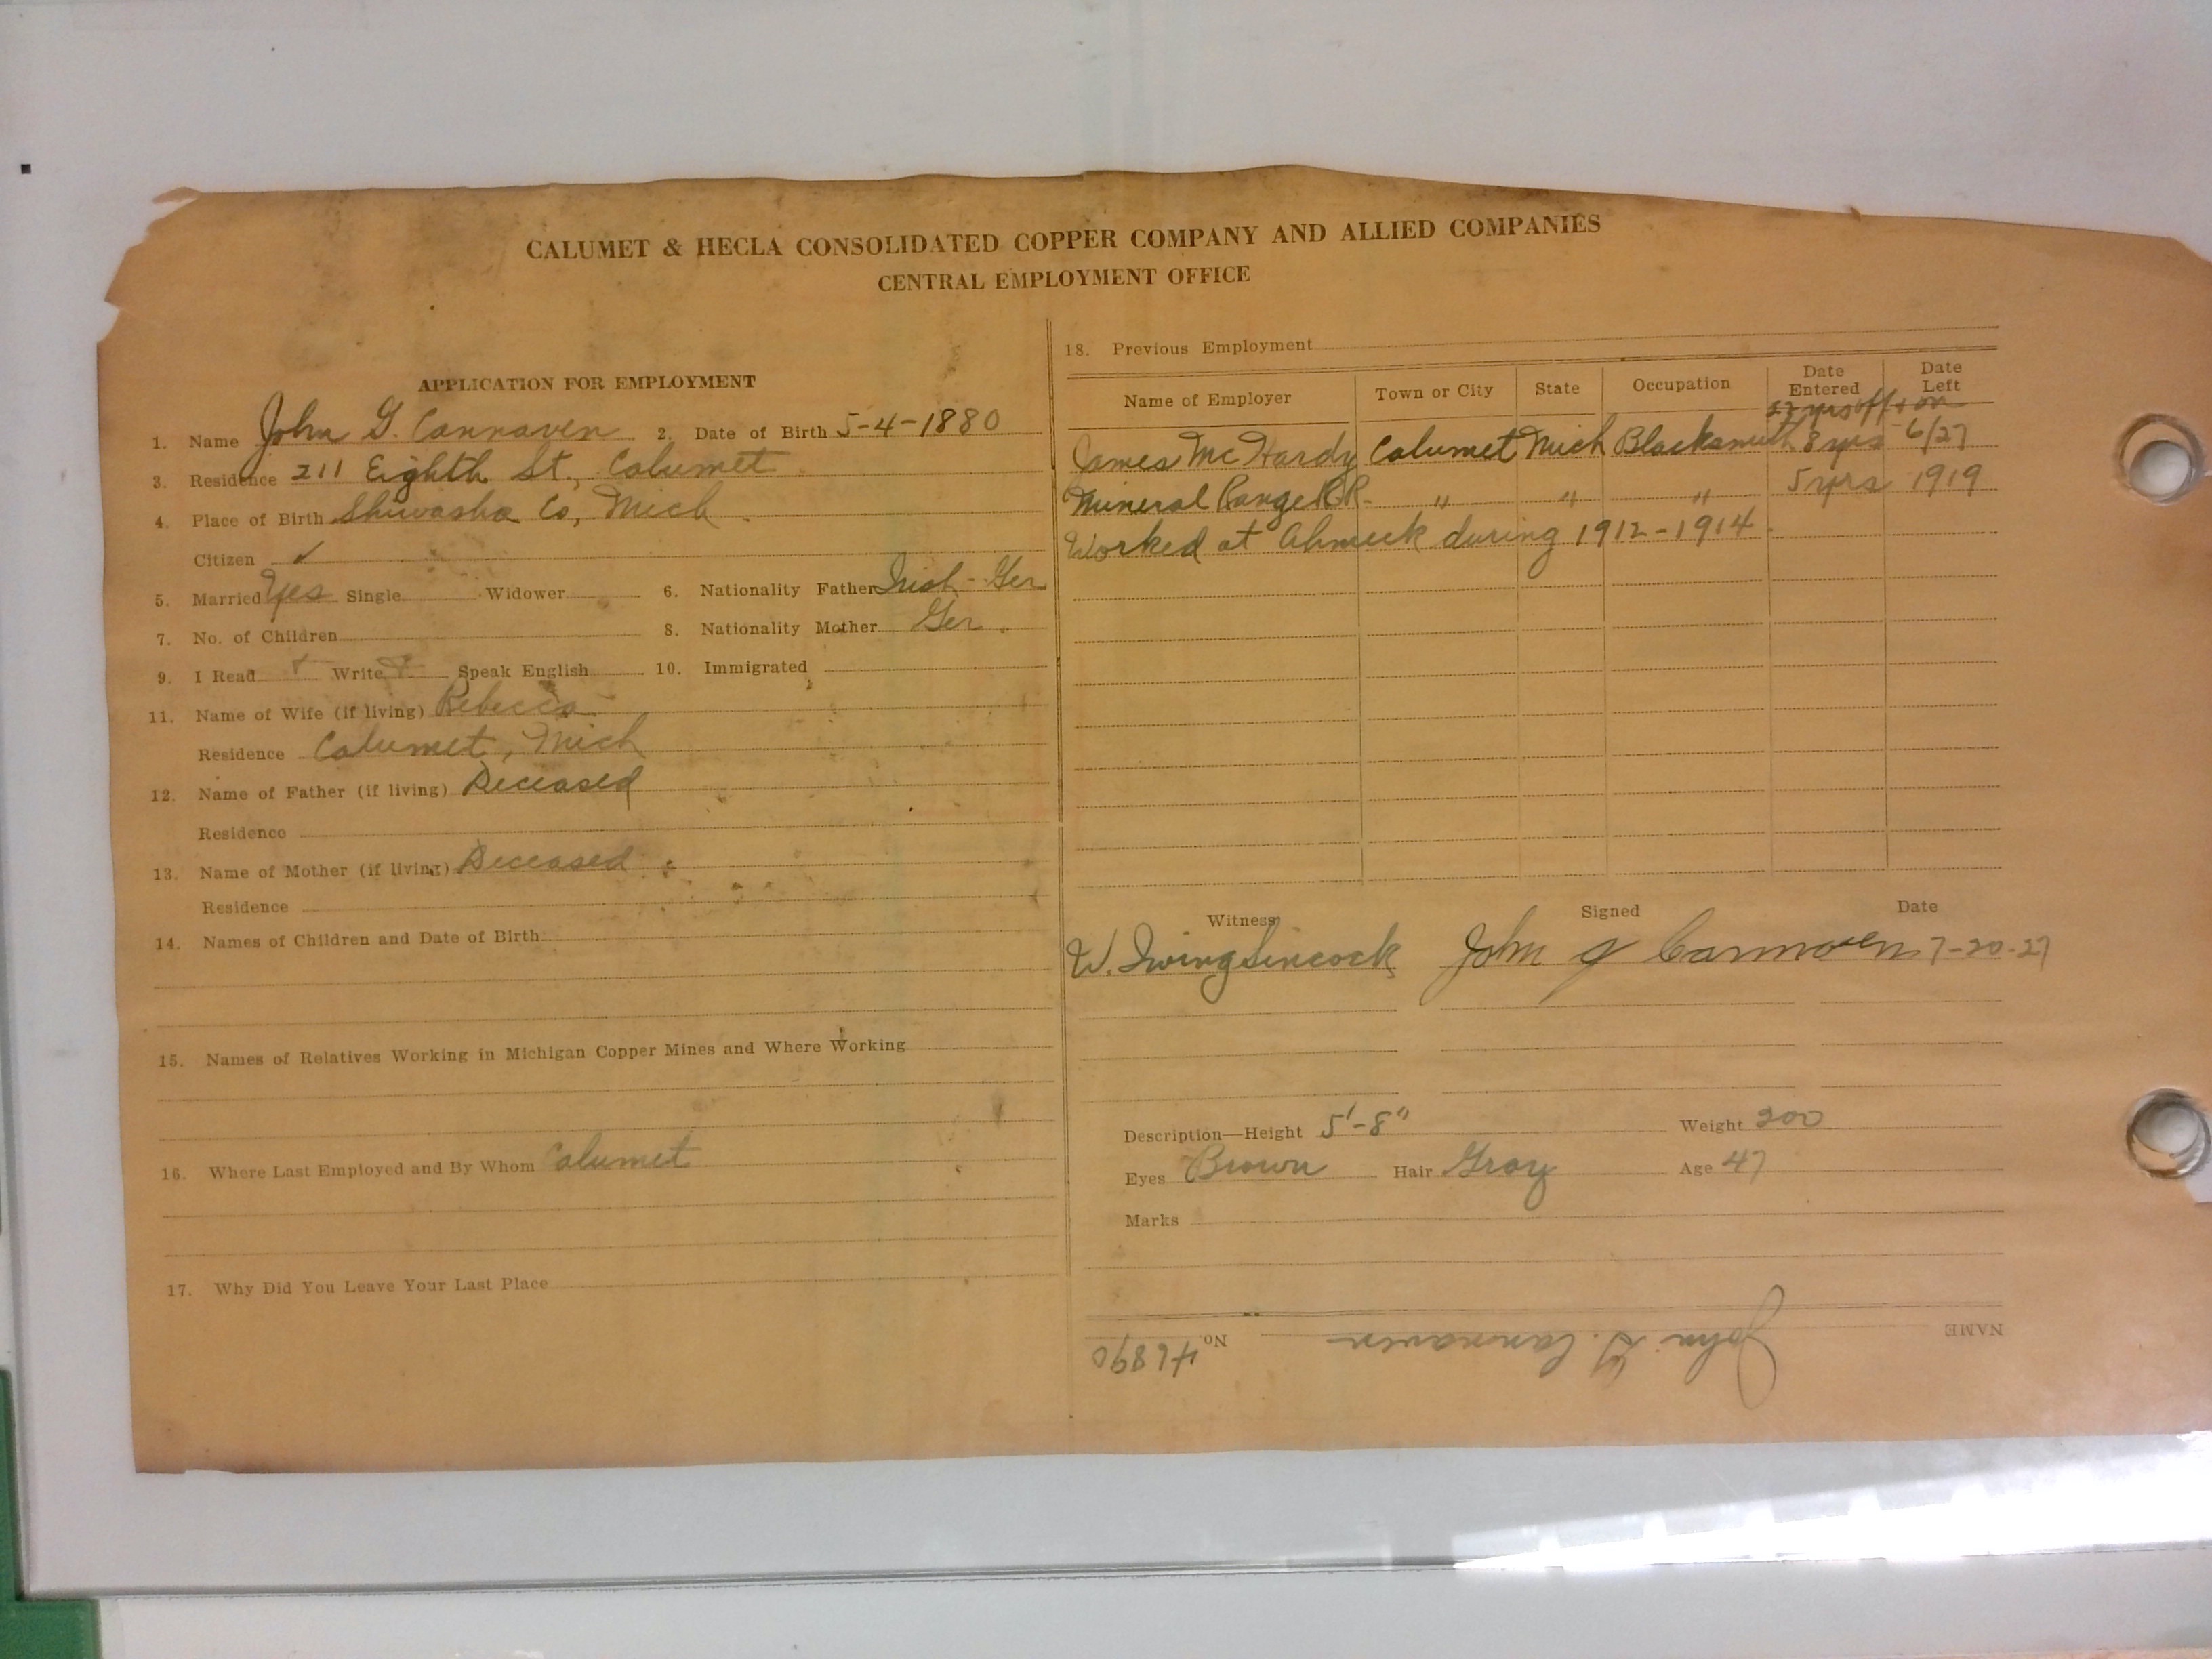 CALUMET & HECLA CONSOLIDATED COPPER COMPANY AND ALLIED COMPANIES
CENTRAL EMPLOYMENT OFFICE
APPLICATION FOR EMPLOYMENT
1. Name John G. Cannaven 2. Date of Birth 5-4-1880
3. Residence 211 Eighth St., Calumet
4. Place of Birth Shiwasha Co, Mich
Citizen ✓
5. Married Yes Single Widower 6. Nationality Father Irish-Ger
7. No. of Children 8. Nationality Mother Ger.
9. I Read Write Speak English 10. Immigrated
11. Name of Wife (if living) Rebecca
Residence Calumet, Mich
12. Name of Father (if living) Deceased
Residence
13. Name of Mother (if living) Deceased
Residence
14. Names of Children and Date of Birth
15. Names of Relatives Working in Michigan Copper Mines and Where Working
16. Where Last Employed and By Whom Calumet
17. Why Did You Leave Your Last Place
18. Previous Employment
Name of Employer Town or City State Occupation Date Entered Date Left
27 yrs off + on
James McHardy Calumet Mich Blacksmith 8 yrs 6/27
Mineral Range RR. " " " 5 yrs 1919
Worked at Ahmeek during 1912-1914.
Witness Signed Date
W. Irving Sincock John G Cannaven 7-20-27
Description—Height 5'-8" Weight 200
Eyes Brown Hair Gray Age 47
Marks
NAME John G. Cannaven No. 46890